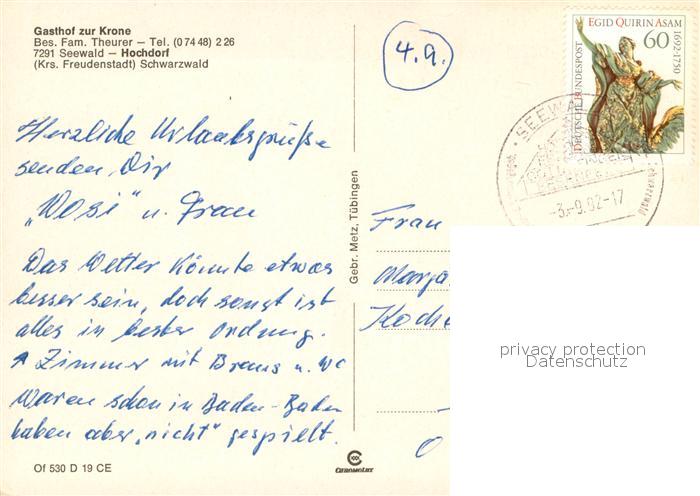 Gasthof zur Krone
Bes. Fam. Theurer – Tel. (0 74 48) 2 26
7291 Seewald – Hochdorf
(Krs. Freudenstadt) Schwarzwald
4.9.
EGID QUIRIN ASAM 1692-1750
60
DEUTSCHE BUNDESPOST
SEEWA
-3.-9.92-17
Herzliche Urlaubsgrüße
senden Dir
"Wosi" u. Frau
Das Wetter könnte etwas
besser sein, doch sonst ist
alles in bester Ordnung.
Zimmer mit Braus u. WC
Waren schon in Baden-Baden
haben aber "nicht" gespielt.
Gebr. Metz, Tübingen
Frau
Marga
Koche
privacy protection
Datenschutz
Of 530 D 19 CE